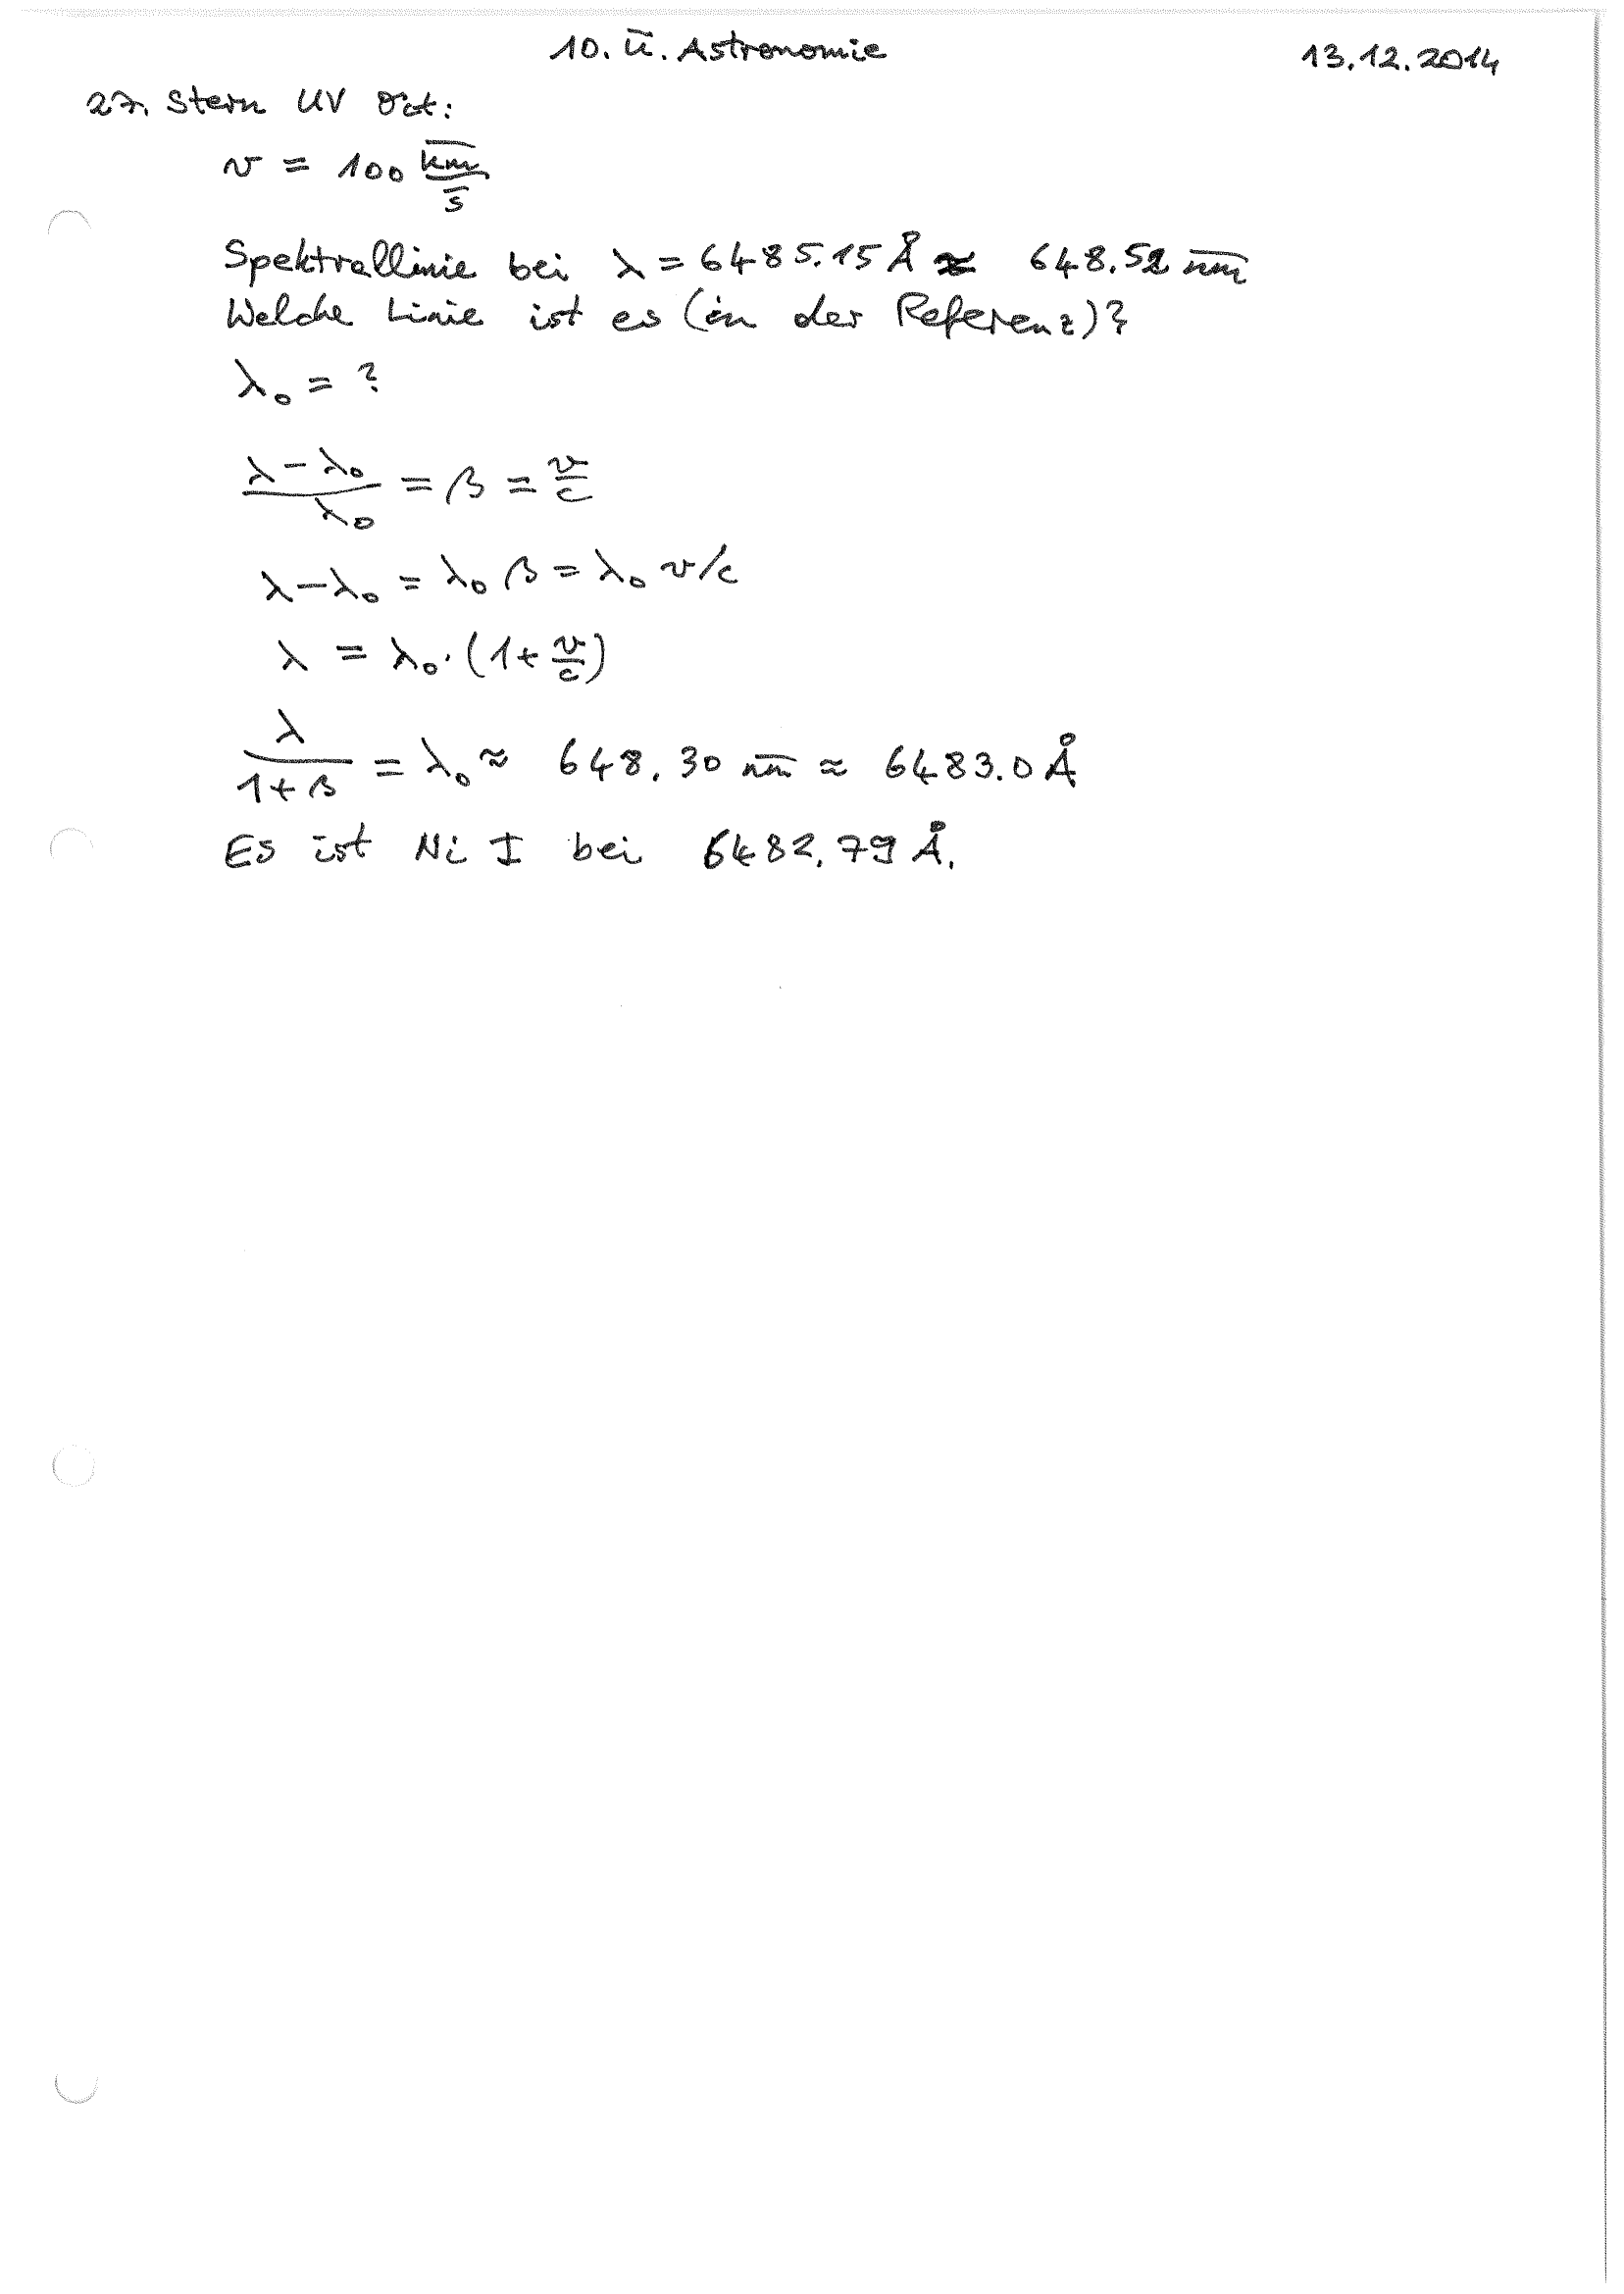 10. Ü. Astronomie
13.12.2014
27. Stern UV Oct:
v = 100 km/s
Spektrallinie bei λ = 6485.15 Å ≈ 648.52 nm
Welche Linie ist es (in der Referenz)?
λ₀ = ?
(λ − λ₀)/λ₀ = β = v/c
λ − λ₀ = λ₀ β = λ₀ v/c
λ = λ₀ · (1 + v/c)
λ/(1 + β) = λ₀ ≈ 648.30 nm ≈ 6483.0 Å
Es ist Ni I bei 6482.79 Å.